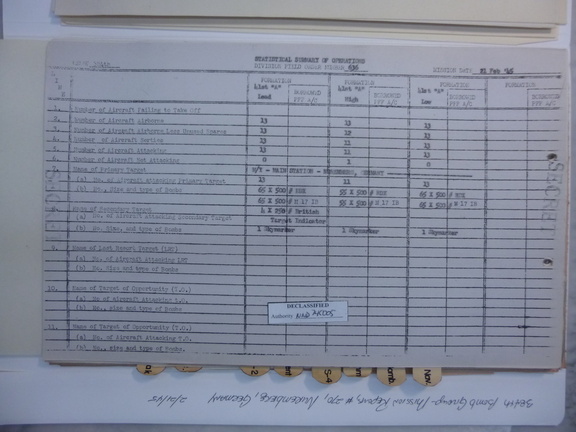 STATISTICAL SUMMARY OF OPERATIONS
DIVISION FIELD ORDER NUMBER 636
MISSION DATE 21 Feb '45
FORMATION FORMATION FORMATION FORMATION
List "A" Lead List "A" High List "A" Low
PFF A/C PFF A/C PFF A/C PFF A/C
1. Number of Aircraft Failing to Take Off
2. Number of Aircraft Airborne 13 13 13
3. Number of Aircraft Airborne Less Unused Spares 13 12 13
4. Number of Aircraft Sorties 13 11 13
5. Number of Aircraft Attacking 13 11 13
6. Number of Aircraft Not Attacking 0 1 0
7. Name of Primary Target MAIN STATION - NUREMBERG, GERMANY
(a) No. of Aircraft Attacking Primary Target 13 11 13
(b) No., Size and type of Bombs 65 X 500 # 55 X 500 # 65 X 500 #
65 X 500 # M 17 IB 55 X 500 # M 17 IB 65 X 500 # M 17 IB
8. Name of Secondary Target British
(a) No. of Aircraft Attacking Secondary Target Target Indicator
(b) No. Size, and type of Bombs 1 Skymarker 1 Skymarker 1 Skymarker
9. Name of Last Resort Target (LRT)
(a) No. of Aircraft Attacking LRT
(b) No. Size and type of Bombs
10. Name of Target of Opportunity (T.O.)
(a) No of Aircraft Attacking T.O.
(b) No. size and type of Bombs
11. Name of Target of Opportunity (T.O.)
(a) No. of Aircraft Attacking T.O.
(b) No., size and type of Bombs.
DECLASSIFIED
Authority NND 745005
SECRET
384th Bomb Group - Mission Report, # 270, Nuremberg, Germany 2/21/45
Nov.
S-4